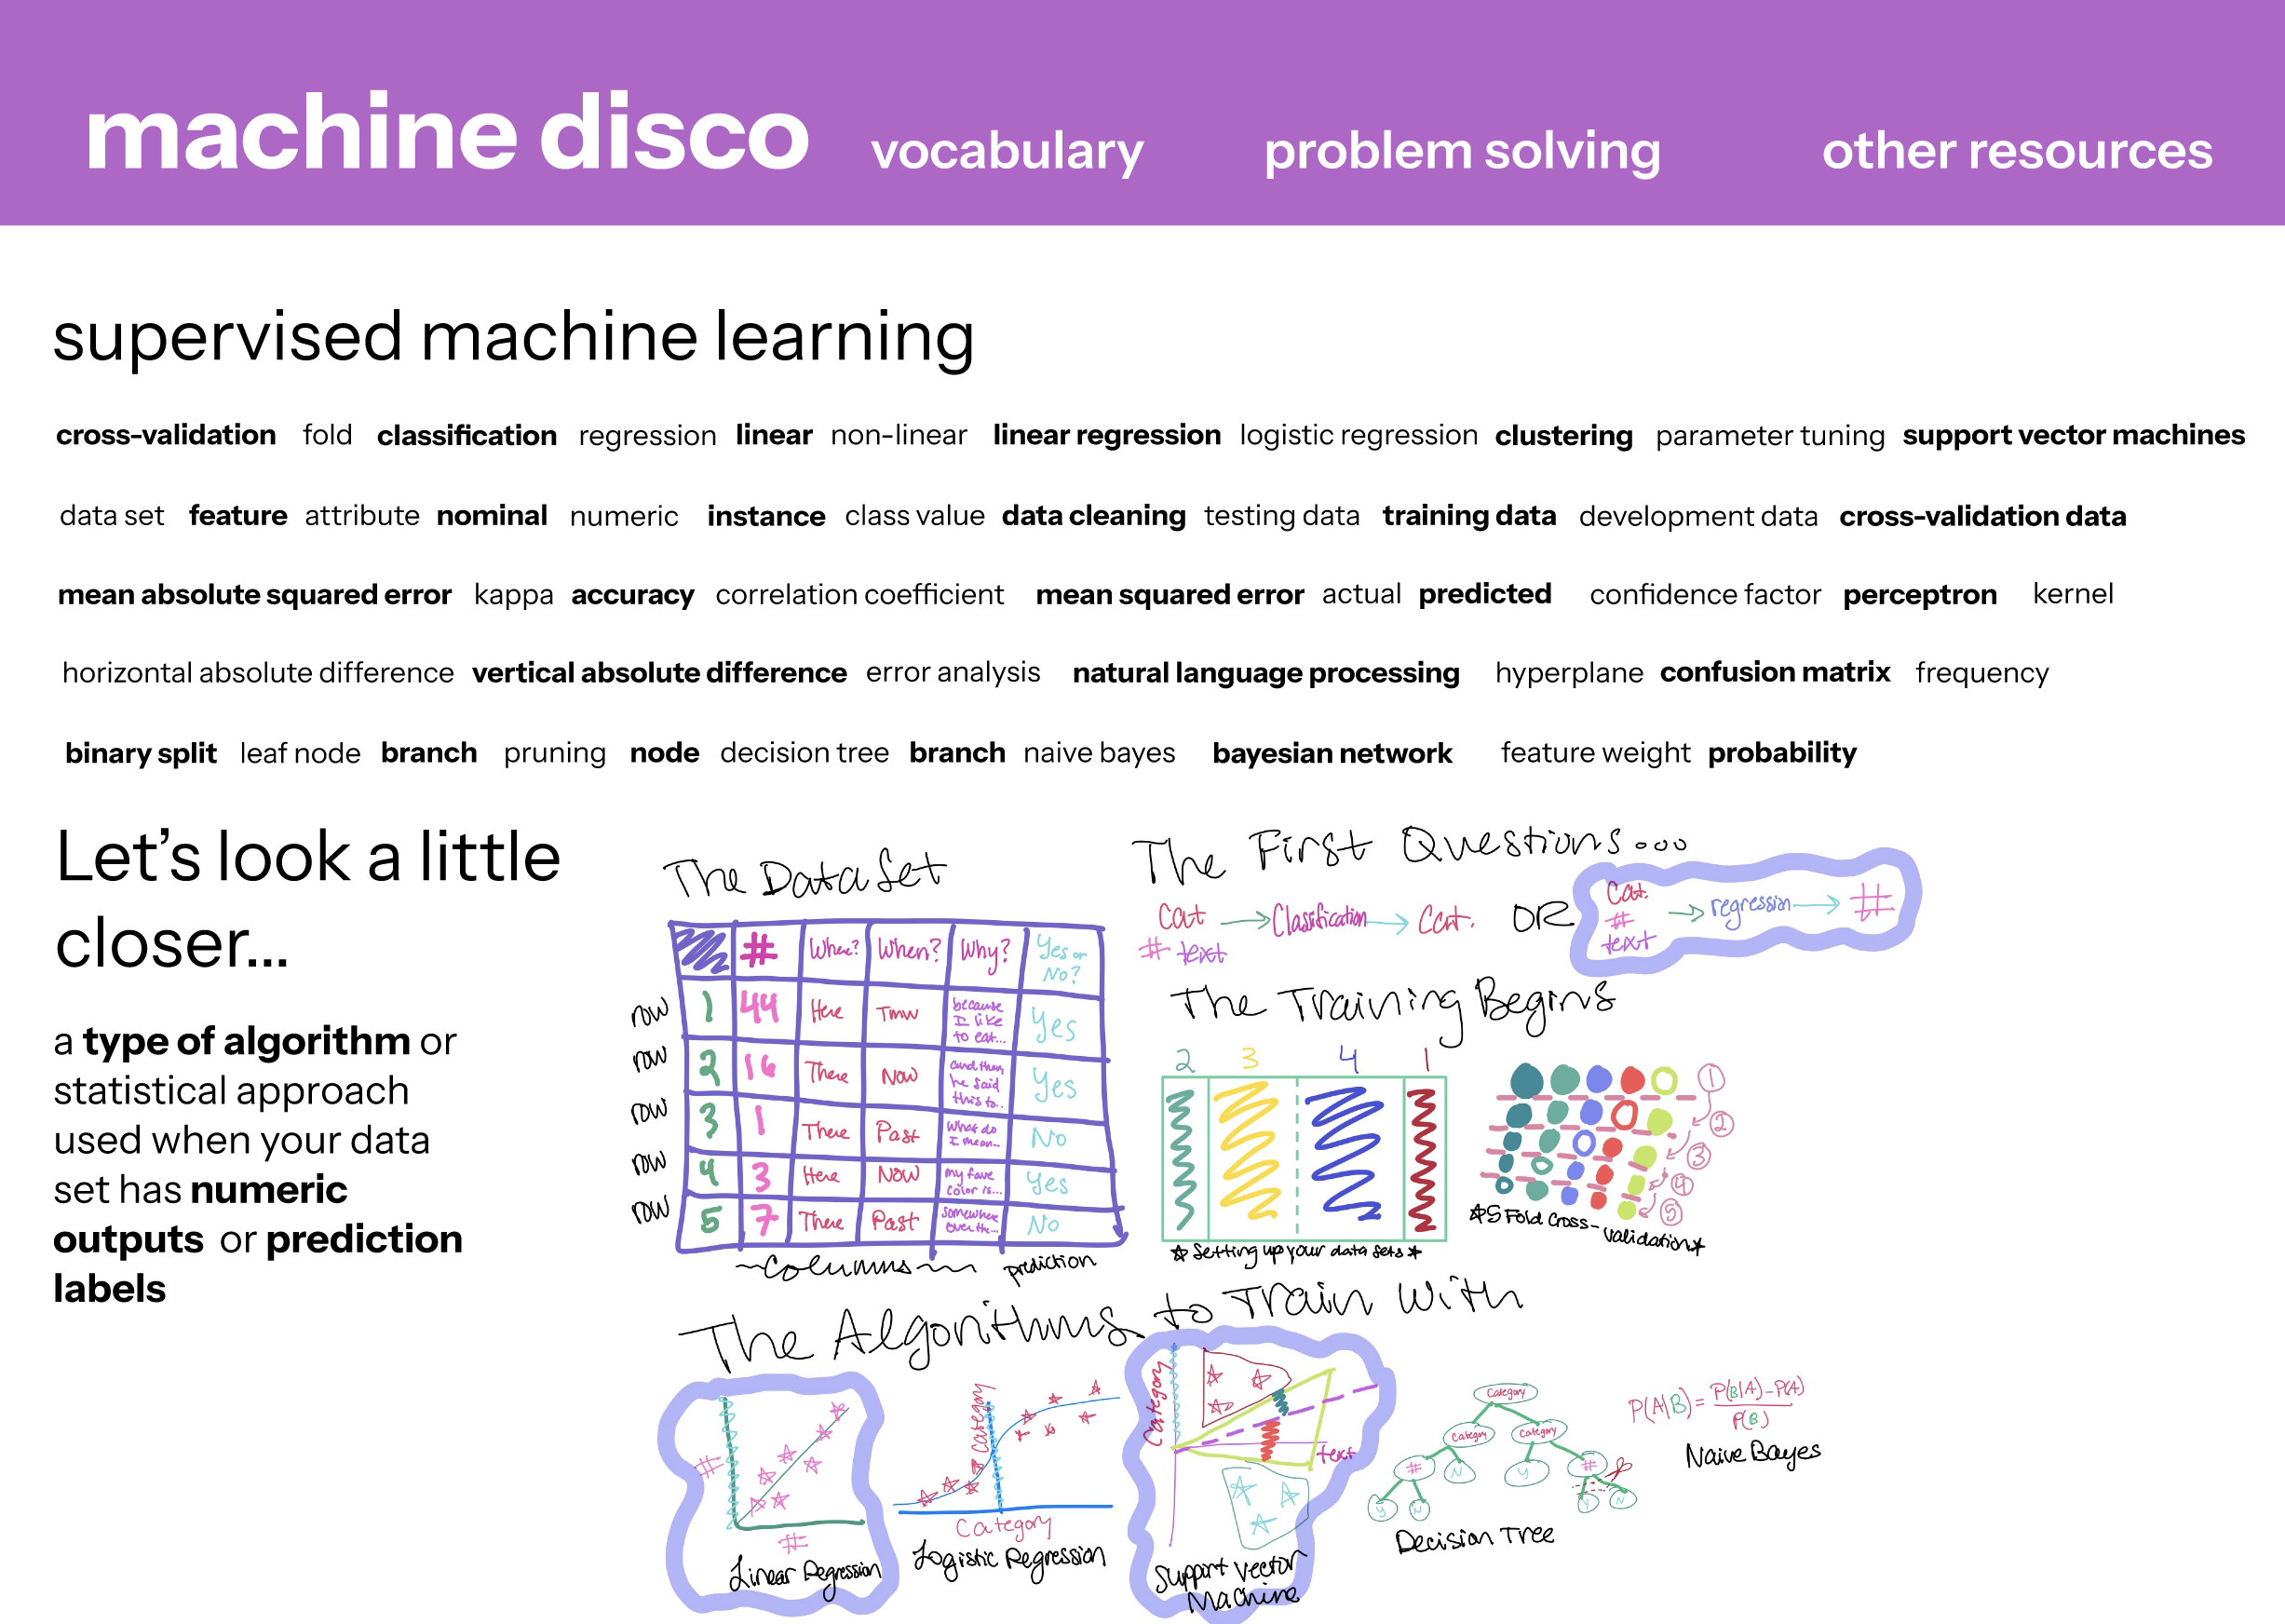 machine disco vocabulary problem solving other resources
supervised machine learning
cross-validation fold classification regression linear non-linear linear regression logistic regression clustering parameter tuning support vector machines
data set feature attribute nominal numeric instance class value data cleaning testing data training data development data cross-validation data
mean absolute squared error kappa accuracy correlation coefficient mean squared error actual predicted confidence factor perceptron kernel
horizontal absolute difference vertical absolute difference error analysis natural language processing hyperplane confusion matrix frequency
binary split leaf node branch pruning node decision tree branch naive bayes bayesian network feature weight probability
Let's look a little
closer...
a type of algorithm or
statistical approach
used when your data
set has numeric
outputs or prediction
labels
The Data Set
# Where? When? Why? Yes or
No?
row 1 44 Here Tmw because
I like
to eat... Yes
row 2 16 There Now and then
he said
this to... Yes
row 3 1 There Past What do
I mean... No
row 4 3 Here Now my fave
color is... Yes
row 5 7 There Past somewhere
over the... No
~Columns~ prediction
The First Questions...
Cat → Classification → Cat. OR
# text
Cat.
# → regression → #
text
The Training Begins
2 3 4 1
☆ Setting up your data sets ☆
1
2
3
4
5
☆5 Fold Cross-Validation☆
The Algorithms to Train With
#
#
Linear Regression
Category
Category
Logistic Regression
Category
text
Support Vector
Machine
Category
Category Category
# N Y #
Y N Y N
Decision Tree
P(A|B) = P(B|A)-P(A)
P(B)
Naive Bayes